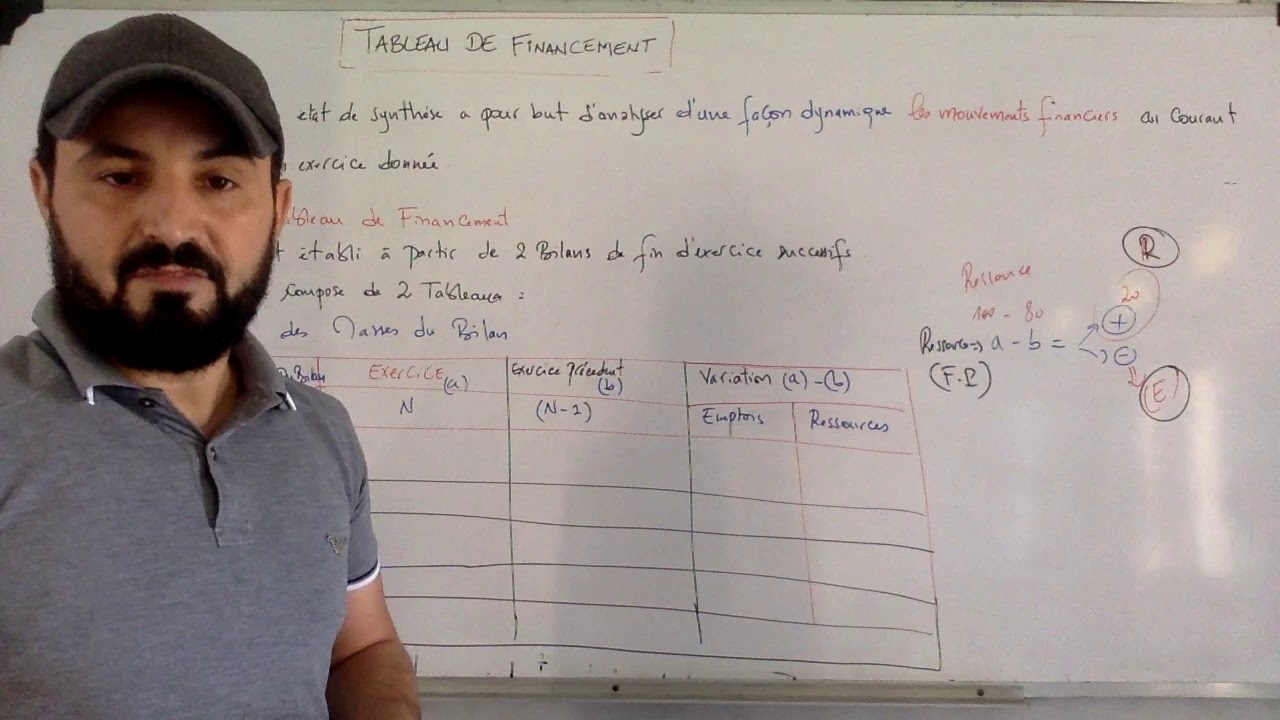 TABLEAU DE FINANCEMENT
état de synthèse a pour but d'analyser d'une façon dynamique les mouvements financiers au Courant
exercice donnée
Tableau de Financement
établi à partir de 2 Bilans de fin d'exercice successifs
compose de 2 Tableaux :
des Masses du Bilan
EXERCICE (a)
N
Exercice précédent (b)
(N-1)
Variation (a) - (b)
Emplois
Ressources
R
Ressource
20
100 - 80
Ressource => a - b =
+
-
(F.P)
(E)